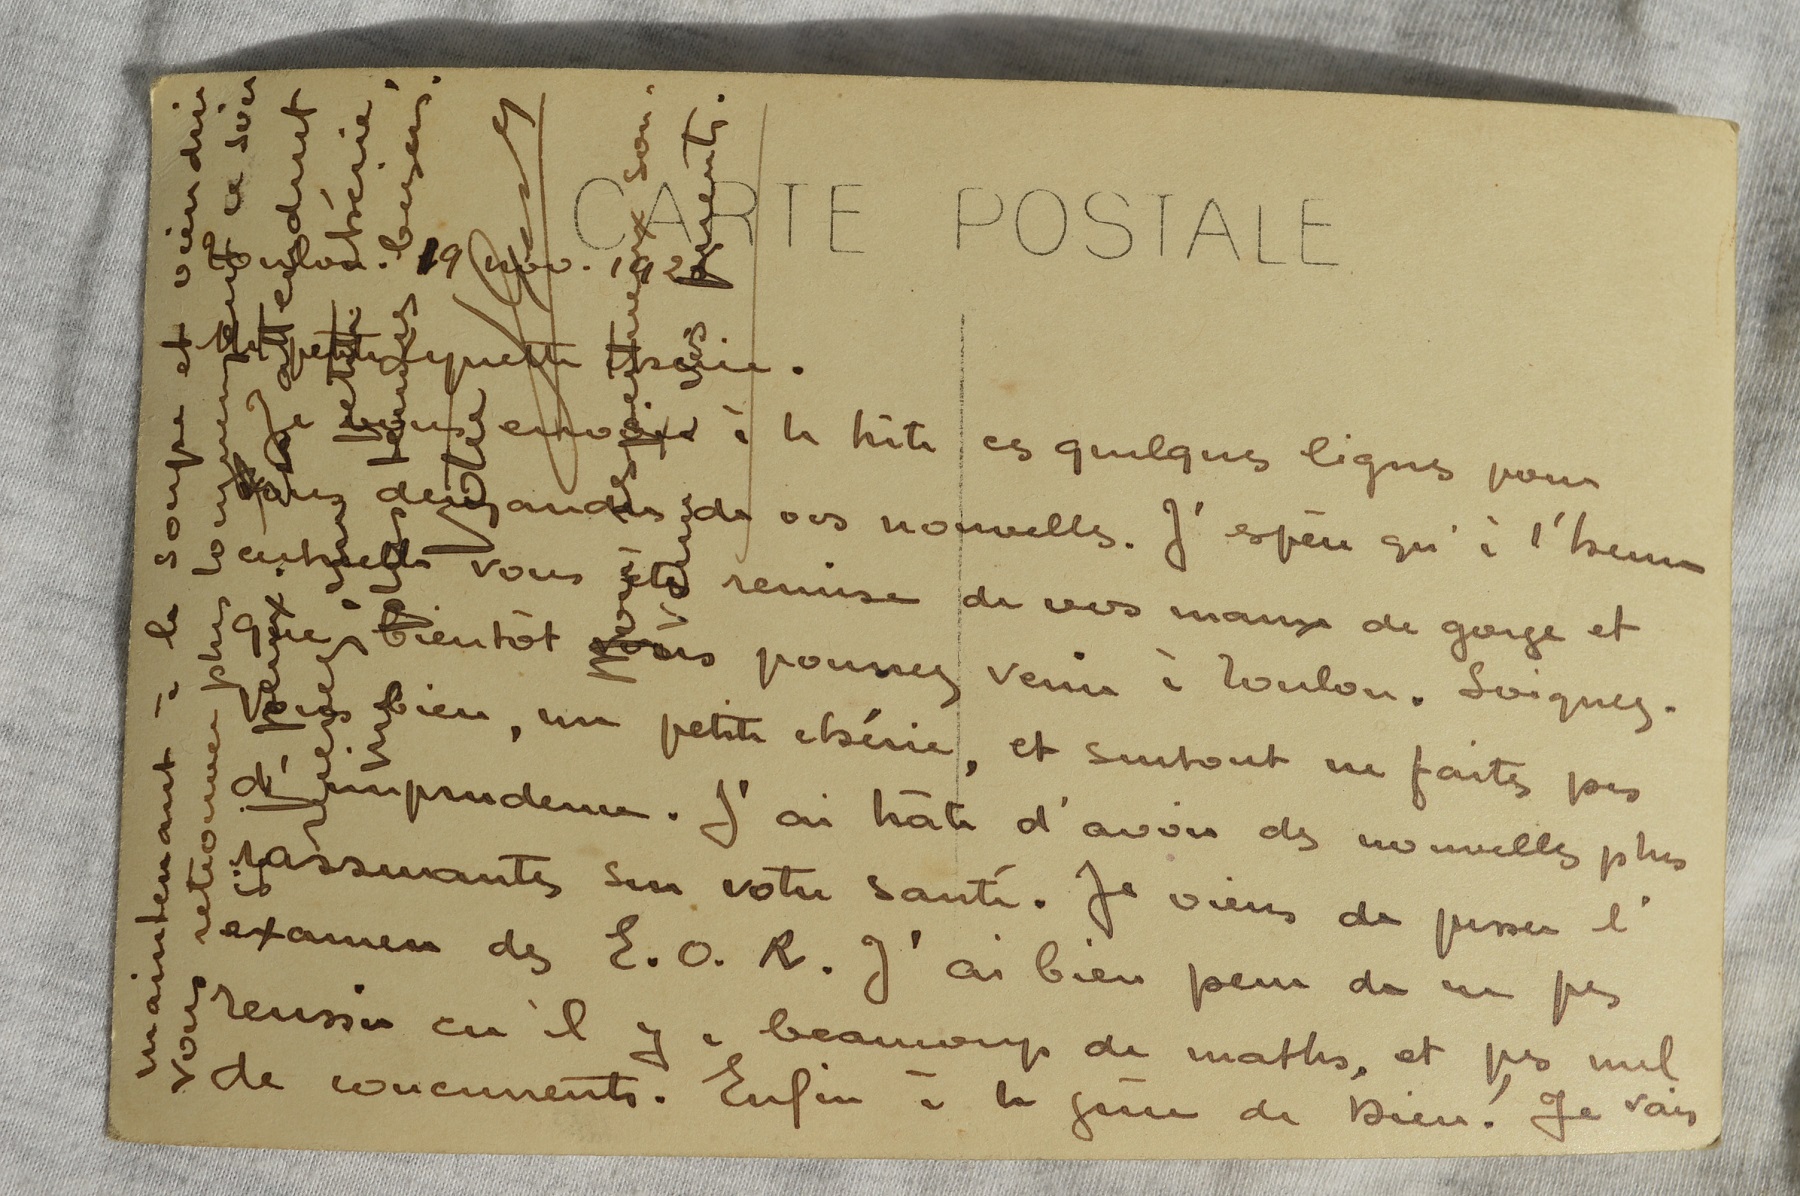 CARTE POSTALE
Toulon. 19 nov. 192
petite chérie.
Je vous envoie à la hâte ces quelques lignes pour
vous demander de vos nouvelles. J'espère qu'à l'heure
actuelle vous êtes remise de vos maux de gorge et
que bientôt vous pourrez venir à Toulon. Soignez-
vous bien, ma petite chérie, et surtout ne faites pas
d'imprudence. J'ai hâte d'avoir des nouvelles plus
rassurantes sur votre santé. Je viens de passer l'
examen des E.O.R. J'ai bien peur de ne pas
reussir car il y a beaucoup de maths, et pas mal
de concurrents. Enfin à la grâce de Dieu! Je vais
maintenant à la soupe et viendrai
vous retrouver plus longuement ce soir
si je peux. attendant
recevez, ma petite chérie,
mes plus tendres baisers.
Votre
mes respectueux souv.
à vos parents.